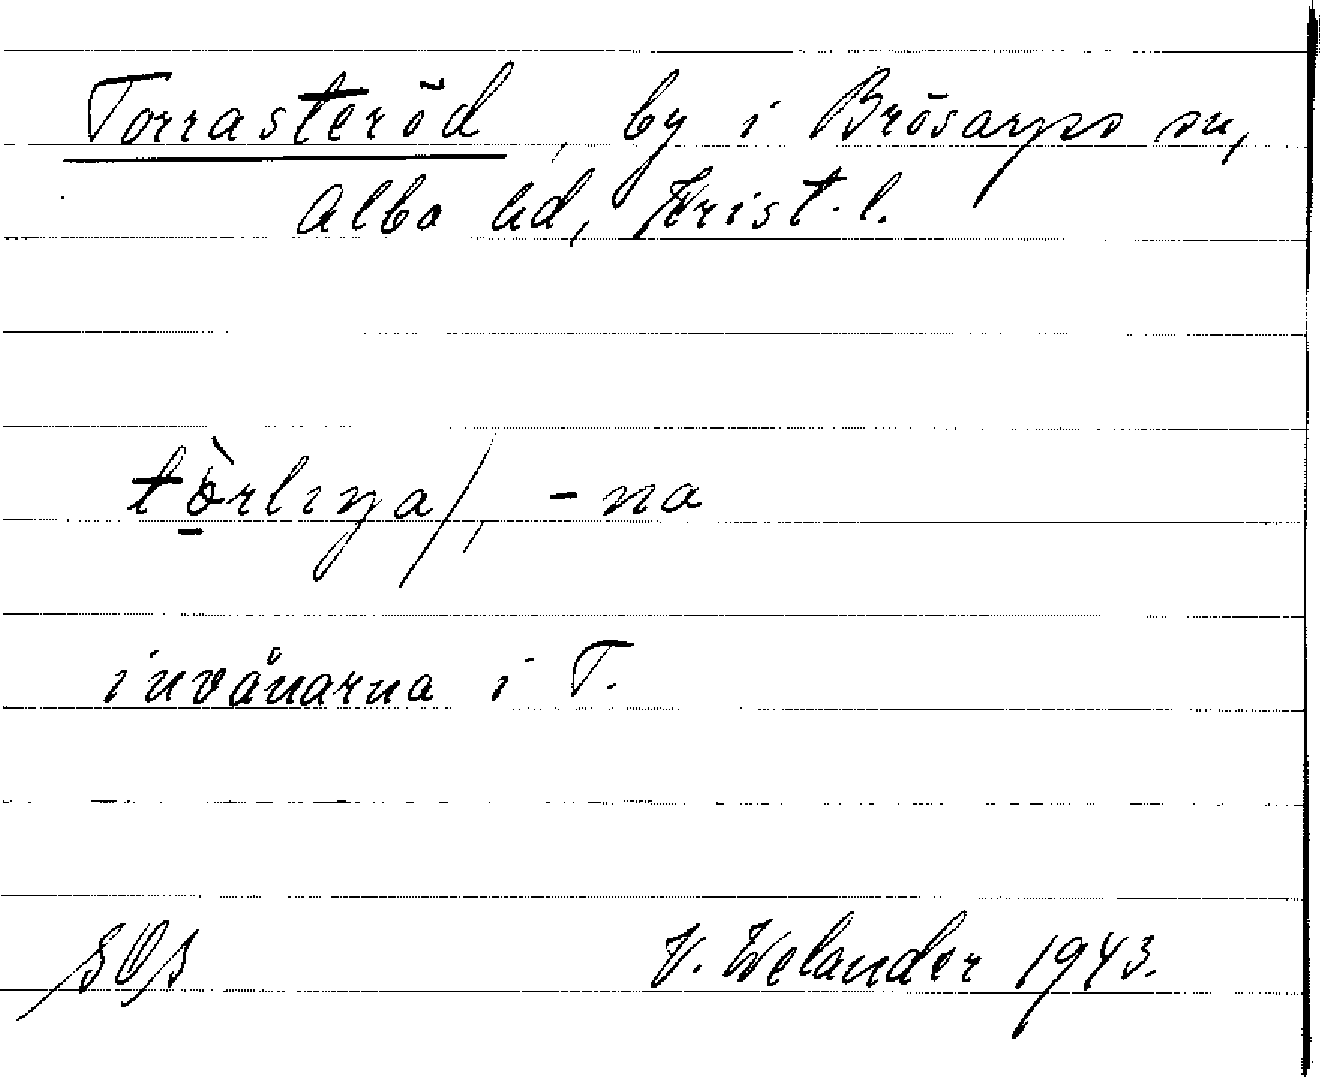 Torrasteröd, by i Brösarps sn,
Albo hd, Krist.l.
tò̱rlιŋa/, -na
invånarna i T.
V. Welander 1943.